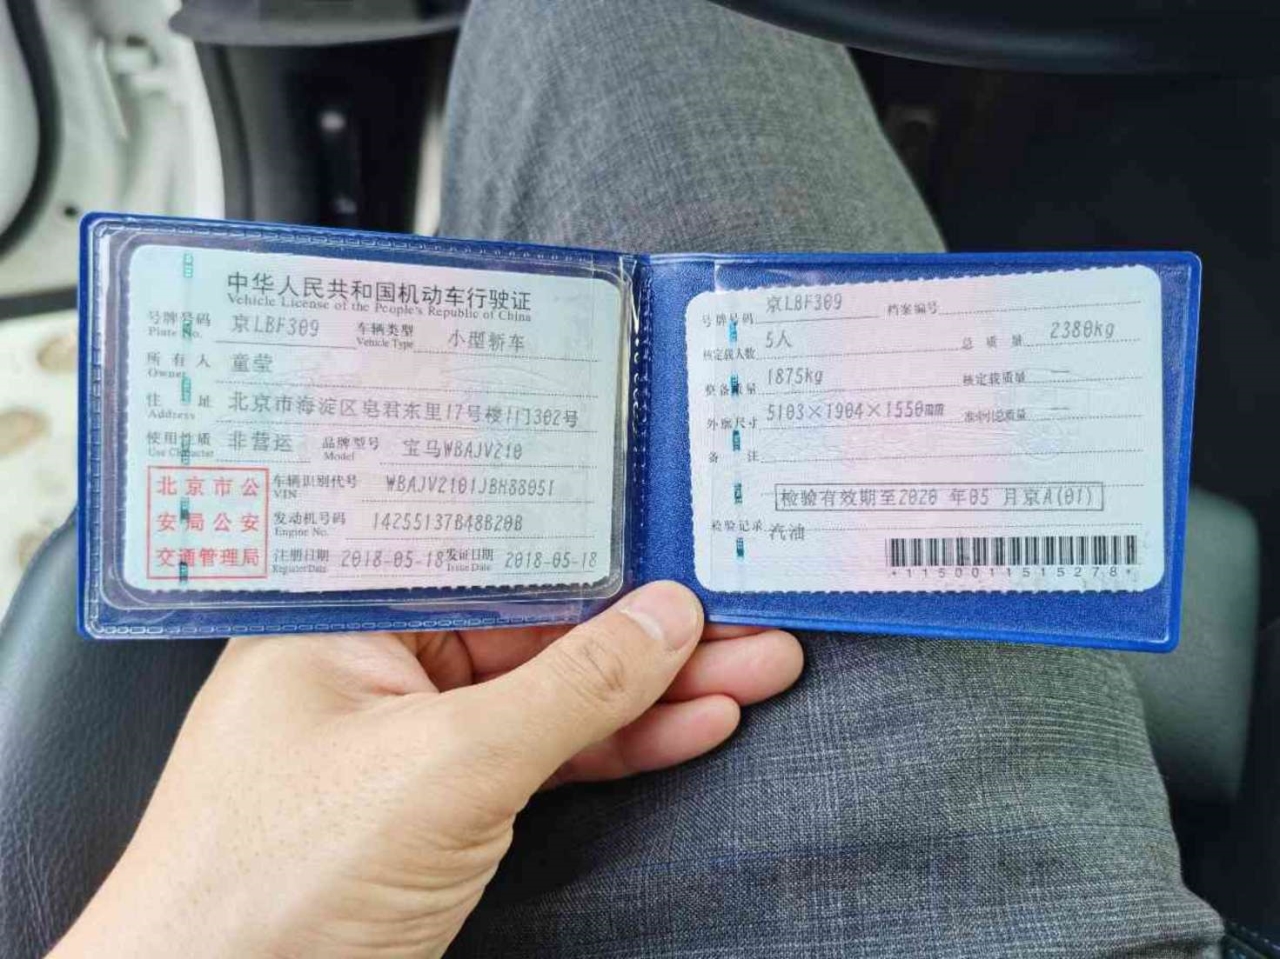 中华人民共和国机动车行驶证
Vehicle License of the People's Republic of China
号牌号码 京LBF309 车辆类型 小型轿车
Plate No. Vehicle Type
所有人 童莹
Owner
住址 北京市海淀区皂君东里17号楼11门302号
Address
使用性质 非营运 品牌型号 宝马WBAJV210
Use Character Model
北京市公
安局公安
交通管理局
车辆识别代号 WBAJV2101JBH88051
VIN
发动机号码 14255137B48B20B
Engine No.
注册日期 2018-05-18 发证日期 2018-05-18
Register Date Issue Date
号牌号码 京LBF309 档案编号
核定载人数 5人 总质量 2380kg
整备质量 1875kg 核定载质量 —
外廓尺寸 5103×1904×1550mm 准牵引总质量 —
备注
检验有效期至2020 年05 月京A(01)
检验记录 汽油
*1150011515278*